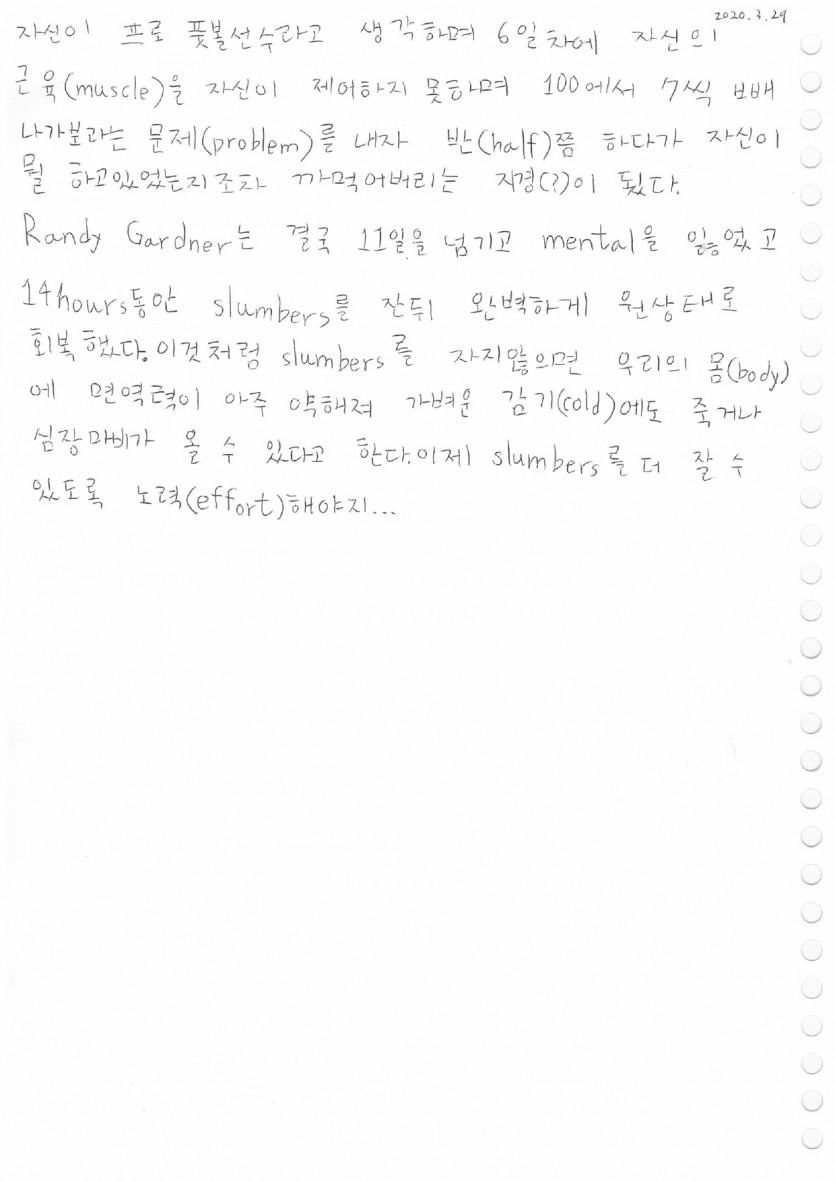 2020.3.29
자신이 프로 풋볼선수라고 생각하며 6일차에 자신의
근육(muscle)을 자신이 제어하지 못하며 100에서 7씩 빼
나가보라는 문제(problem)를 내자 반(half)쯤 하다가 자신이
뭘 하고있었는지조차 까먹어버리는 지경(?)이 됬다.
Randy Gardner는 결국 11일을 넘기고 mental을 잃었고
14hours동안 slumbers를 잔뒤 완벽하게 원상태로
회복했다.이것처럼 slumbers를 자지않으면 우리의 몸(body)
에 면역력이 아주 약해져 가벼운 감기(cold)에도 죽거나
심장마비가 올 수 있다고 한다.이제 slumbers를 더 잘 수
있도록 노력(effort)해야지...